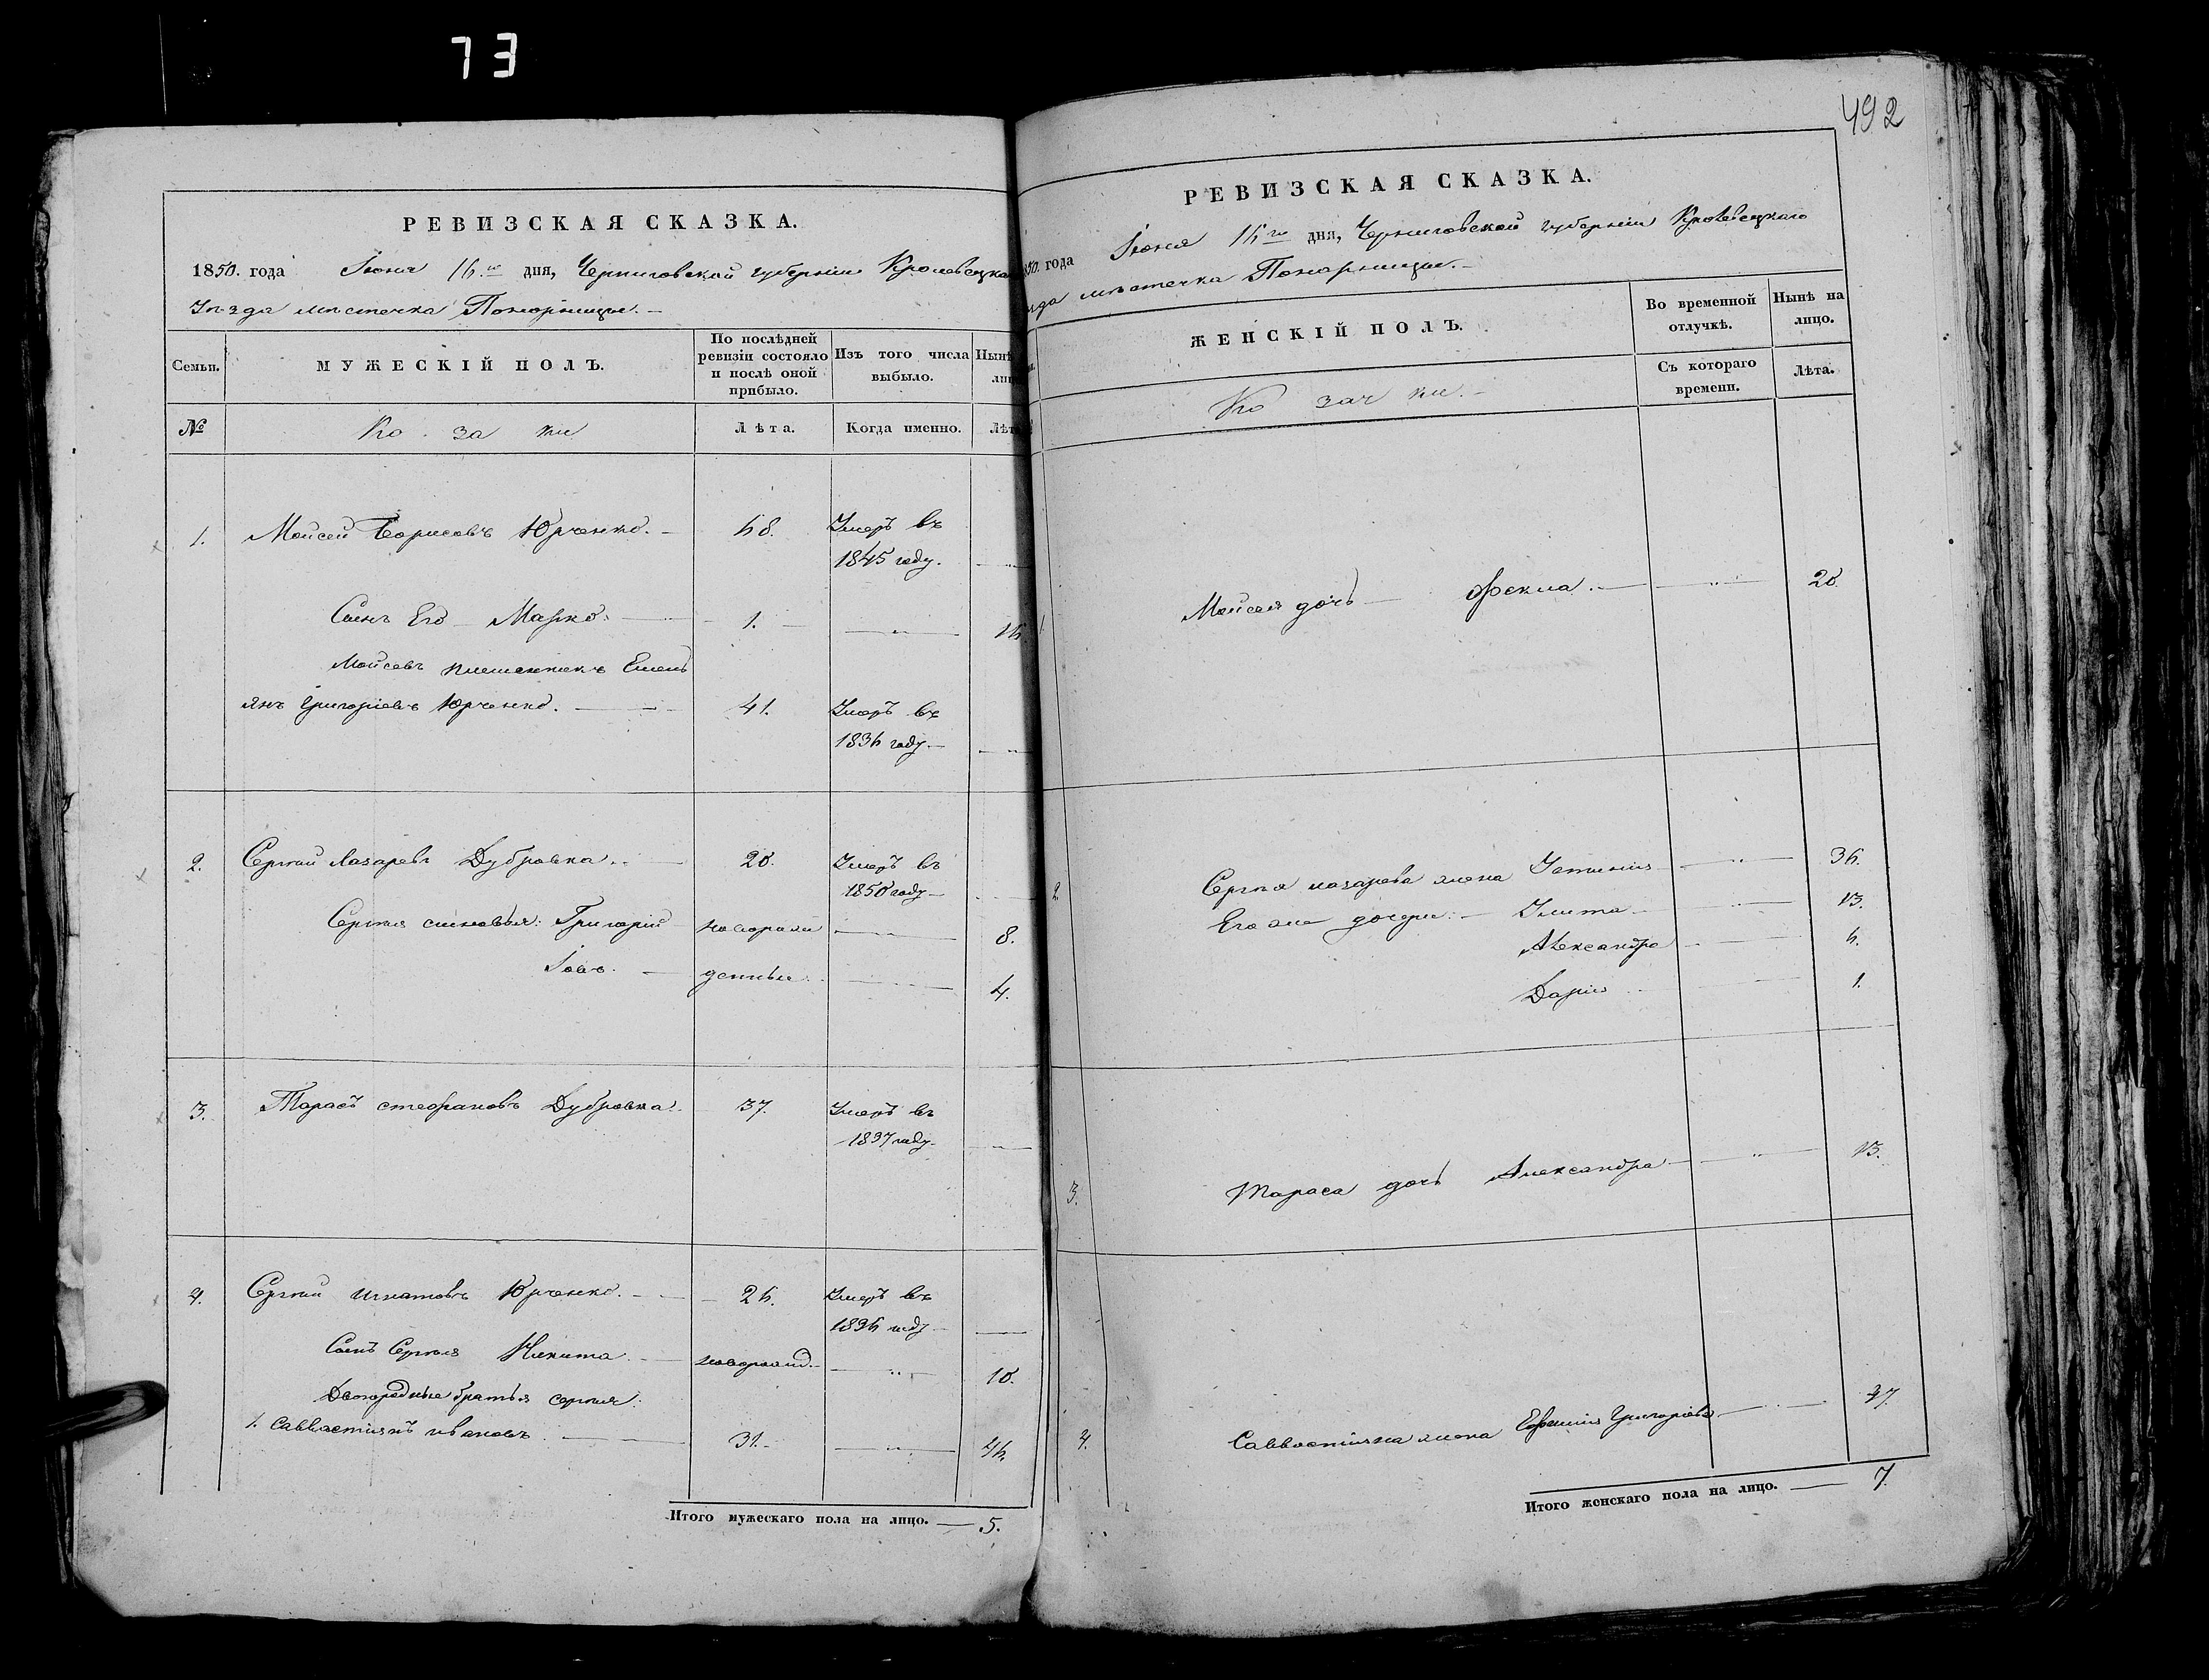 73
492
РЕВИЗСКАЯ СКАЗКА.
1850. года Іюня 16го дня, Черниговской губерніи Кролевецкаго
Уѣзда мѣстечка Понорницы.
Семьи.
МУЖЕСКІЙ ПОЛЪ.
По послѣдней ревизіи состояло и послѣ оной прибыло.
Изъ того числа выбыло.
Нынѣ
№
Ко за ки
Лѣта.
Когда именно.
Лѣта
1. Мойсей Борисовъ Юрченко. 68. Умеръ въ
1845 году.
Сынъ Его Марко. 1. 16.
Мойсевъ племенникъ Емель
янъ Григоріевъ Юрченко. 41. Умеръ въ
1836 году.
2. Сергѣй Лазаревъ Дубровка. 20. Умеръ въ
1850 году
Сергѣя сыновья: Григорій новорож 8.
Іовъ. денные. 4.
3. Тарасъ Стефановъ Дубровка. 37. Умеръ въ
1837 году.
4. Сергѣй Игнатовъ Юрченко. 26. Умеръ въ
1836 году
Сынъ Сергѣя Никита новорожд. 10.
Двоюродные братья Сергѣя:
1. Савастіянъ Ивановъ 31. 46.
Итого мужескаго пола на лицо. 5.
РЕВИЗСКАЯ СКАЗКА.
850. года Іюня 16го дня, Черниговской губерніи Кролевецкаго
зда мѣстечка Понорницы.
ЖЕНСКІЙ ПОЛЪ.
Во временной отлучкѣ.
Нынѣ на лицо.
Ко зач ки.
Съ котораго времени.
Лѣта.
Мойсея дочь Фекла. 20.
2. Сергѣя Лазарева жена Устинія 36.
Его же дочери: Улита 13.
Александра 6.
Дарія 1.
3. Тараса дочь Александра 13.
4. Савастіяна жена Ефимія Григоріева 47.
Итого женскаго пола на лицо. 7.